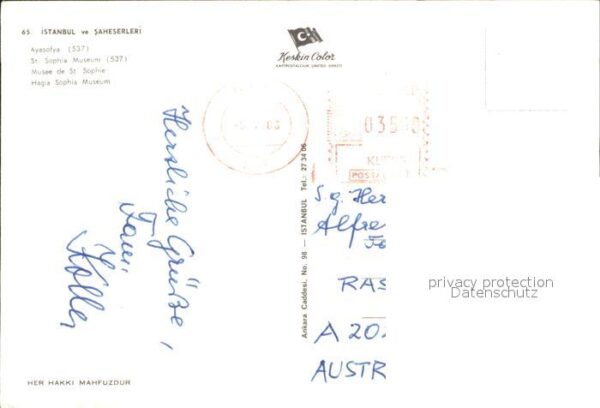 65 İSTANBUL ve ŞAHESERLERİ
Ayasofya (537)
St Sophia Museum (537)
Musee de St Sophie
Hagia Sophia Museum
Keskin Color
KARTPOSTALCILIK LIMITED ŞİRKETİ
Herzliche Grüße,
Fam.
Koller
Ankara Caddesi, No. 98 — ISTANBUL Tel.: 27 34 06
S.g. Her
Alfre
RAS
A 20
AUSTR
privacy protection
Datenschutz
HER HAKKI MAHFUZDUR